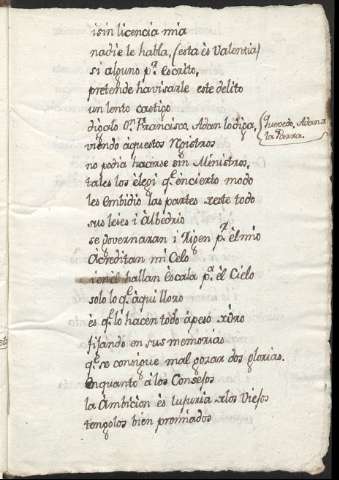 i sin licencia mia
nadie le habla, (esta ès Valentia)
si alguno pr. Escrito,
pretende havisarle este delito
un lento castigo
digalo Dn. Francisco, Adan lo diga,
viendo aquestos Rexistros
no podia hacerse sin Ministros,
tales los elegi qe. en cierto modo
les embidio las partes, sobre todo
sus leies i Albedrio
se governaran i Rijen pr. el mio
Acreditan mi Celo
i en el hallan Escala pa. el Cielo
solo lo qe. aqui lloro
ès qe. lo hacen todo à peso de oro
fijando en sus memorias
qe. se consigue mal gozar dos glorias.
Enquanto à los Consejos
la Ambicion ès lujuria de los Viejos
tengolos bien premiados
Quevedo, Adan a
la Parra.